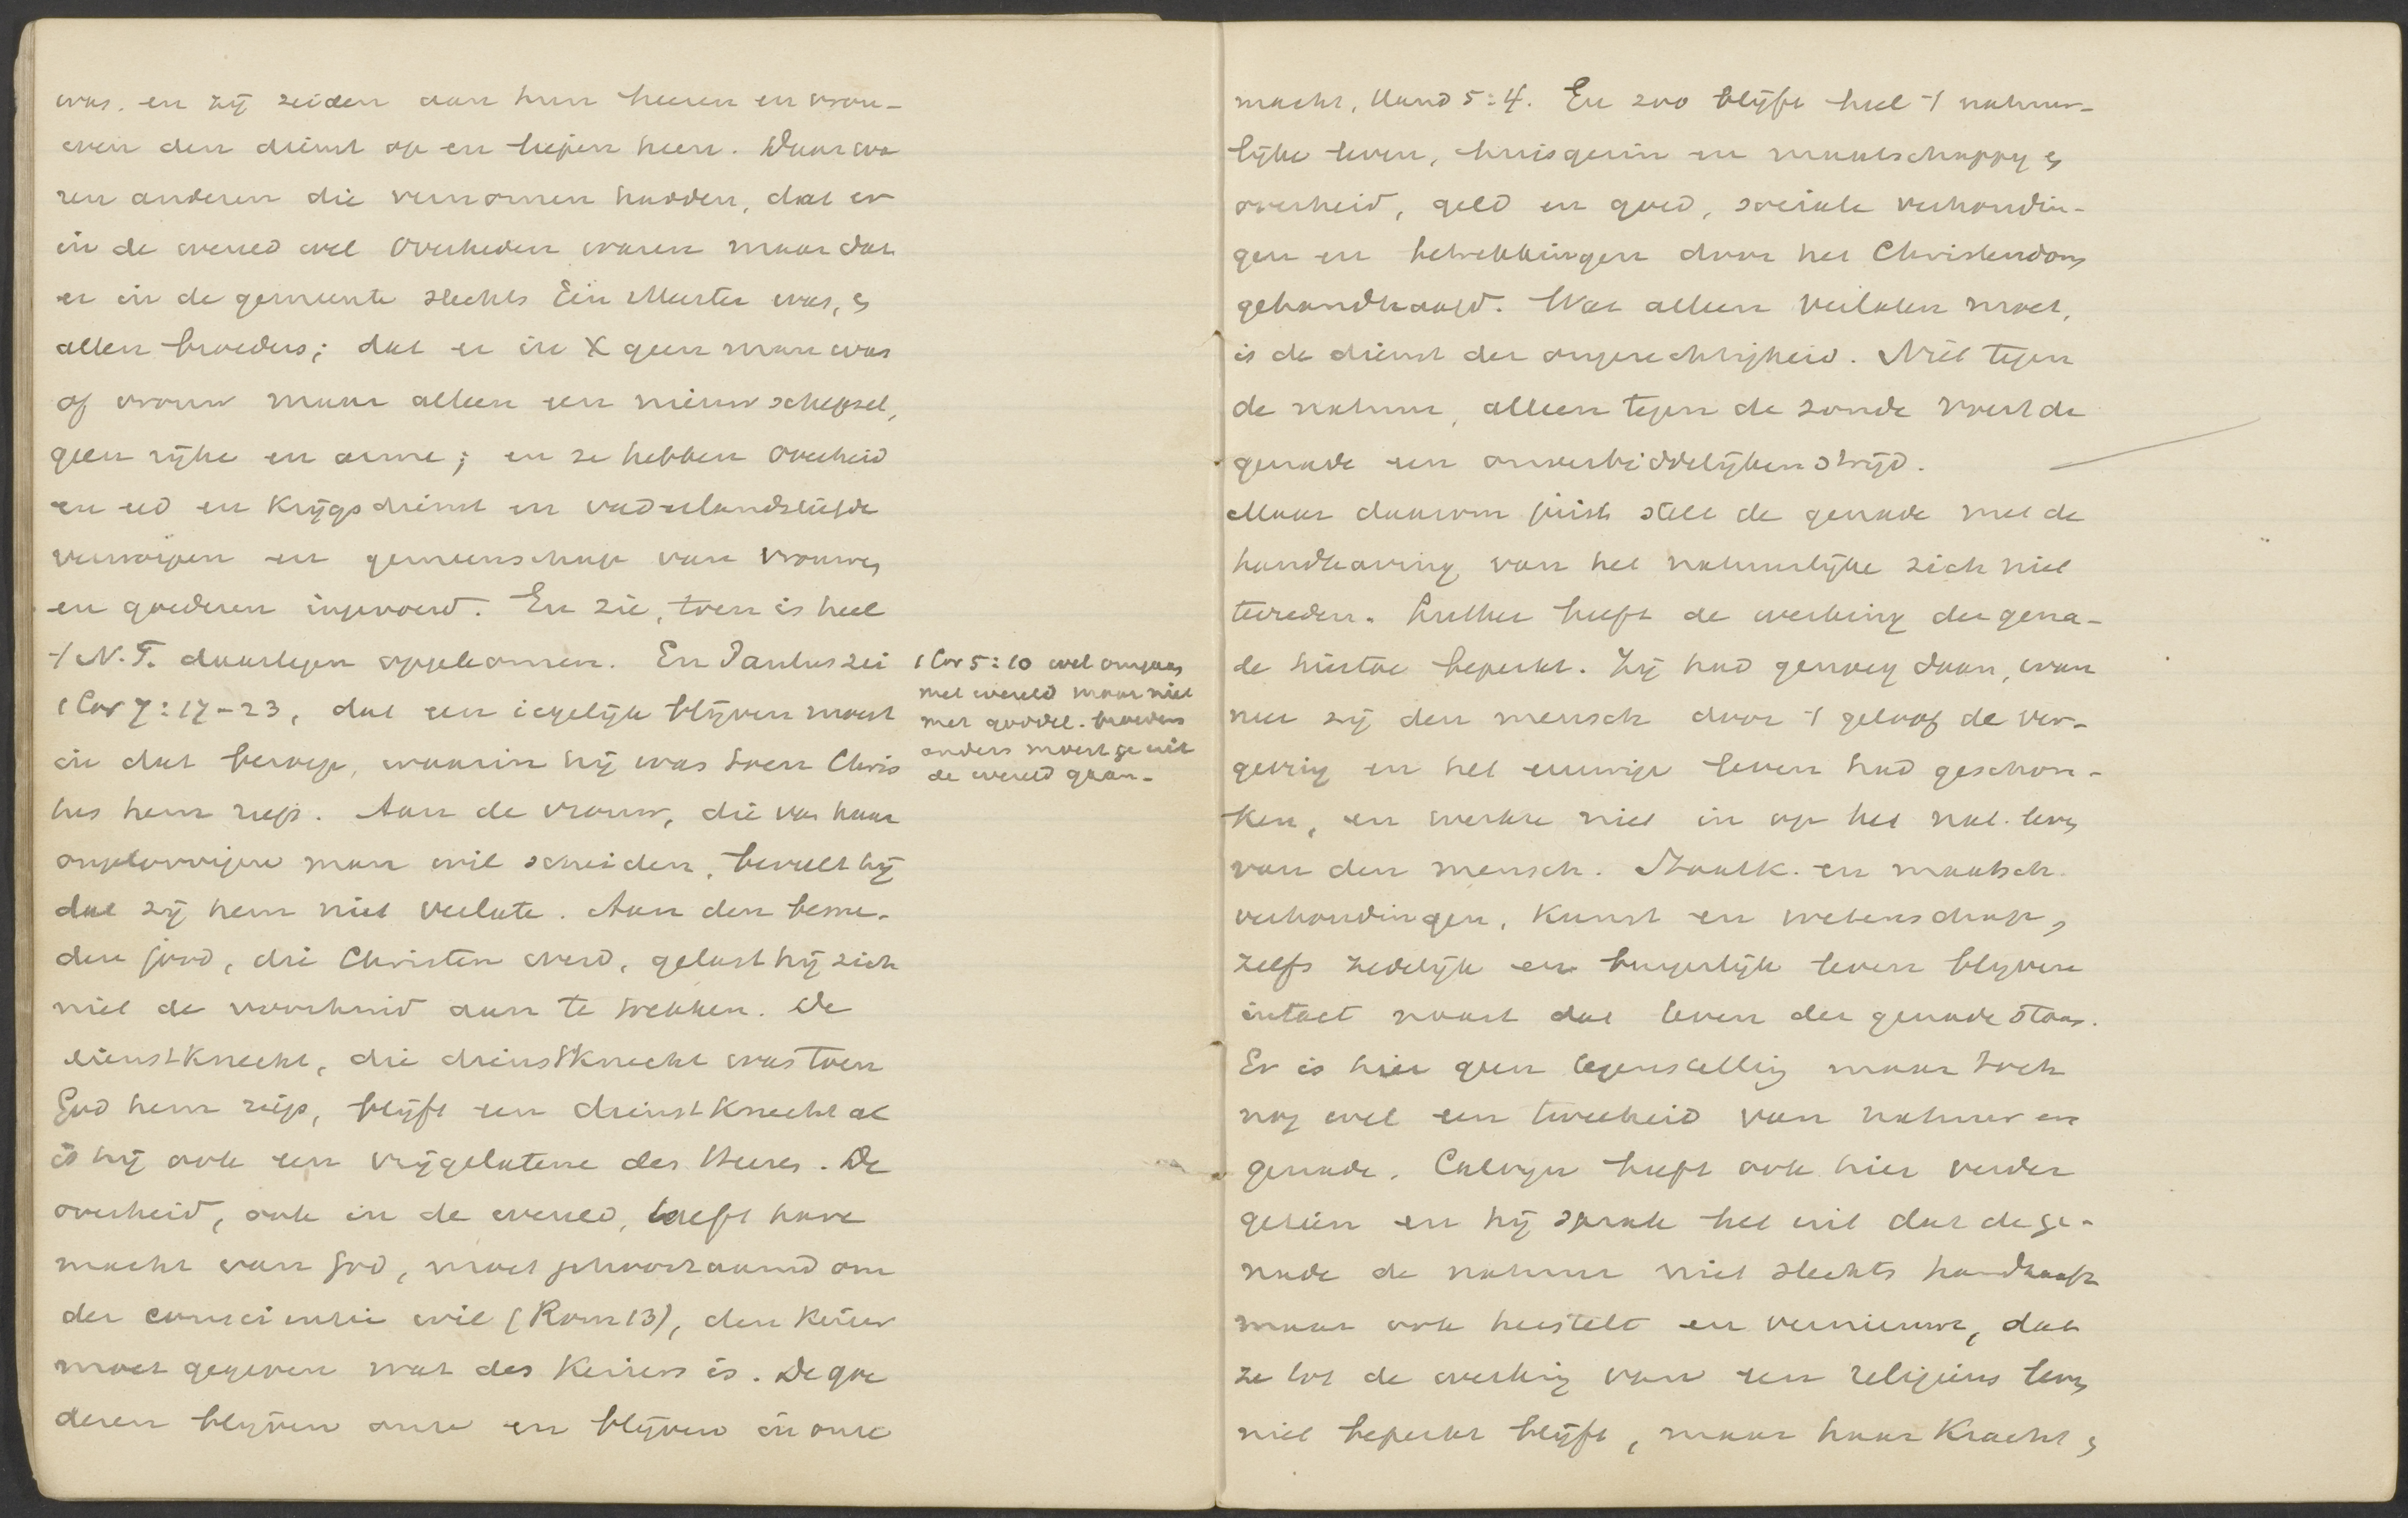 was. en zij zeiden aan hun heeren en vrou-
wen den dienst op en liepen heen. Daar wa
ren anderen die vernomen hadden, dat er
in de wereld wel Overheden waren maar dat
er in de gemeente slechts Één Meester was, &
allen broeders; dat er in X geen man was
of vrouw maar alleen een nieuw schepsel,
geen rijke en arme; en ze hebben Overheid
en eed en Krijgsdienst en vaderlandsliefde
verworpen en gemeenschap van vrouwen
en goederen ingevoerd. En zie, toen is heel
't N.T. daartegen opgekomen. En Paulus zei
1 Cor 7:17-23, dat een iegelijk blijven moest
in dat beroep, waarin hij was toen Chris
tus hem riep. Aan de vrouw, die van haar
ongeloovigen man wil scheiden, beveelt hij
dat zij hem niet verlate. Aan den besne-
den jood, die Christen werd, gelast hij zich
niet de voorhuid aan te trekken. De
dienstKnecht, die dienstKnecht was toen
God hem riep, blijft een dienstKnecht al
is hij ook een vrijgelatene des Heeren. De
overheid, ook in de wereld, heeft hare
macht van God, moet gehoorzaamd om
der conscientie wil (Rom 13), den Keizer
moet gegeven wat des Keizers is. De goe
deren blijven onze en blijven in onze
1 Cor 5:10 wel omgaan
met wereld maar niet
met goddel. broeders
anders moest ge uit
de wereld gaan-
macht, Hand 5:4. En zoo blijft heel 't natuur-
lijke leven, huisgezin en maatschappij &
overheid, geld en goed, sociale verhoudin-
gen en betrekkingen door het Christendom
gehandhaafd. Wat alleen verlaten moet,
is de dienst der ongerechtigheid. Niet tegen
de natuur, alleen tegen de zonde voert de
genade een onverbiddelijken strijd.
Maar daarom juist stelt de genade met de
handhaving van het natuurlijke zich niet
tevreden. Luther heeft de werking der gena-
de hiertoe beperkt. Zij had genoeg daan, wan
neer zij den mensch door 't geloof de ver-
geving en het eeuwige leven had geschon-
ken, en werkte niet in op het nat. leven
van den mensch. Staatk. en maatsch.
verhoudingen, Kunst en wetenschap,
zelfs zedelijk en burgerlijk leven blijven
intact naast dat leven der genade staan.
Er is hier geen tegenstelling maar toch
nog wel een tweeheid van natuur en
genade. Calvijn heeft ook hier verder
gezien en hij sprak het uit dat de ge-
nade de natuur niet slechts handhaaft
maar ook herstelt en vernieuwt, dat
ze tot de werking van een religieus leven
niet beperkt blijft, maar haar Kracht &